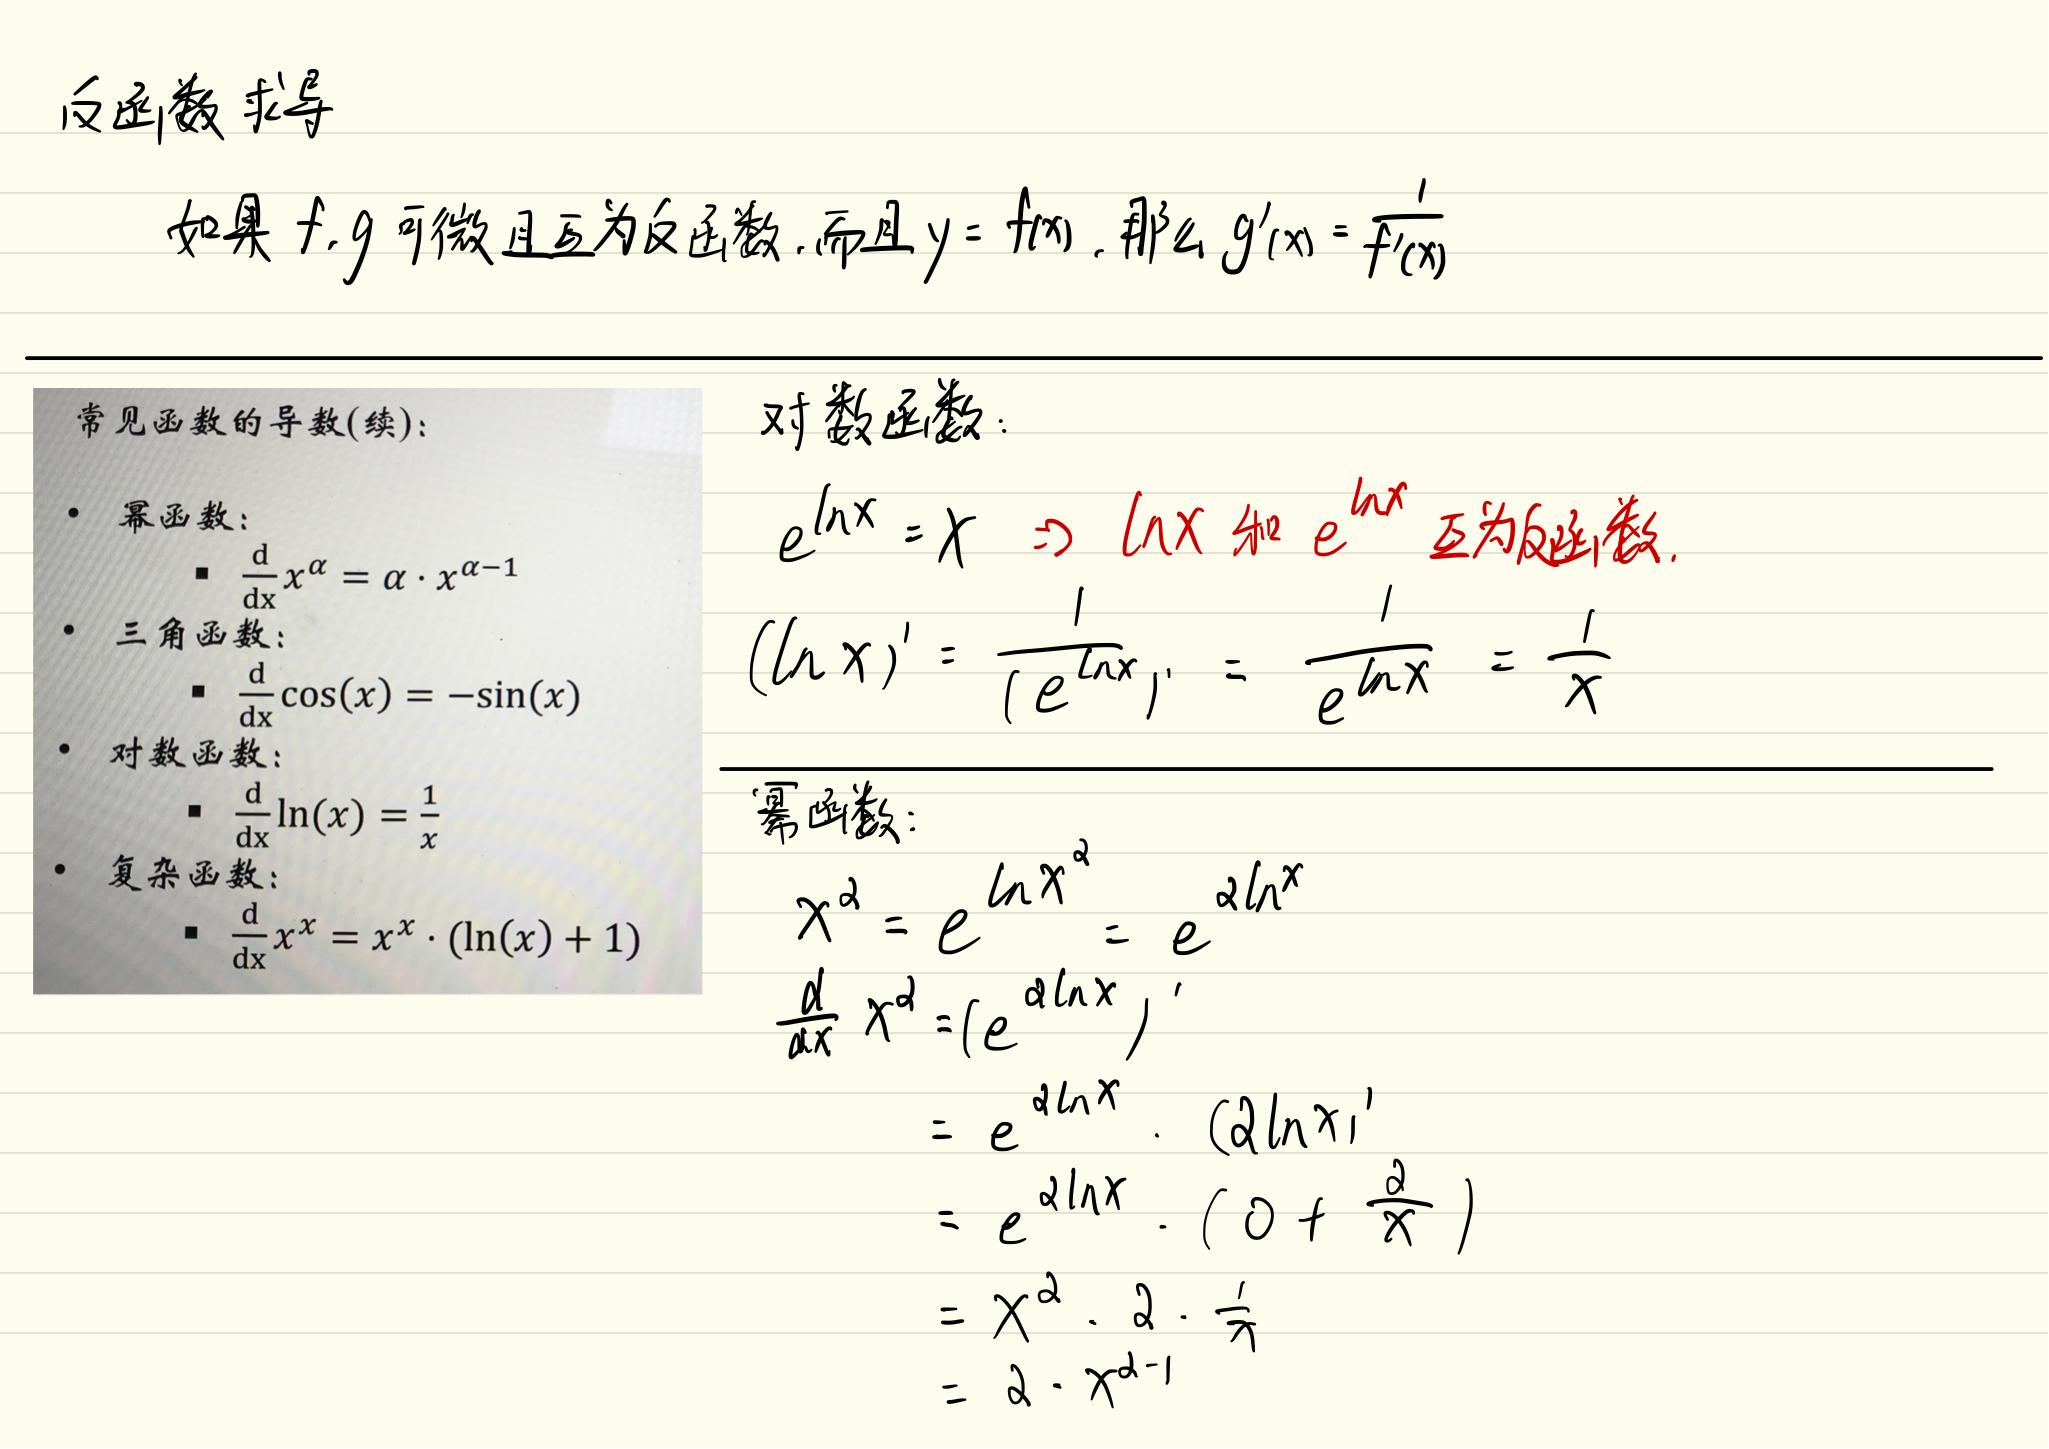 反函数求导
如果 f, g 可微且互为反函数,而且 y = f(x), 那么 g'(x) = 1/f'(x)
常见函数的导数(续):
• 幂函数:
▪ d/dx x^α = α · x^(α−1)
• 三角函数:
▪ d/dx cos(x) = −sin(x)
• 对数函数:
▪ d/dx ln(x) = 1/x
• 复杂函数:
▪ d/dx x^x = x^x · (ln(x) + 1)
对数函数:
e^(lnx) = x ⇒ lnx 和 e^(lnx) 互为反函数.
(ln x)' = 1/(e^(lnx))' = 1/e^(lnx) = 1/x
幂函数:
x^2 = e^(lnx^2) = e^(2lnx)
d/dx x^2 = (e^(2lnx))'
= e^(2lnx) · (2lnx)'
= e^(2lnx) · (0 + 2/x)
= x^2 · 2 · 1/x
= 2 · x^(2-1)